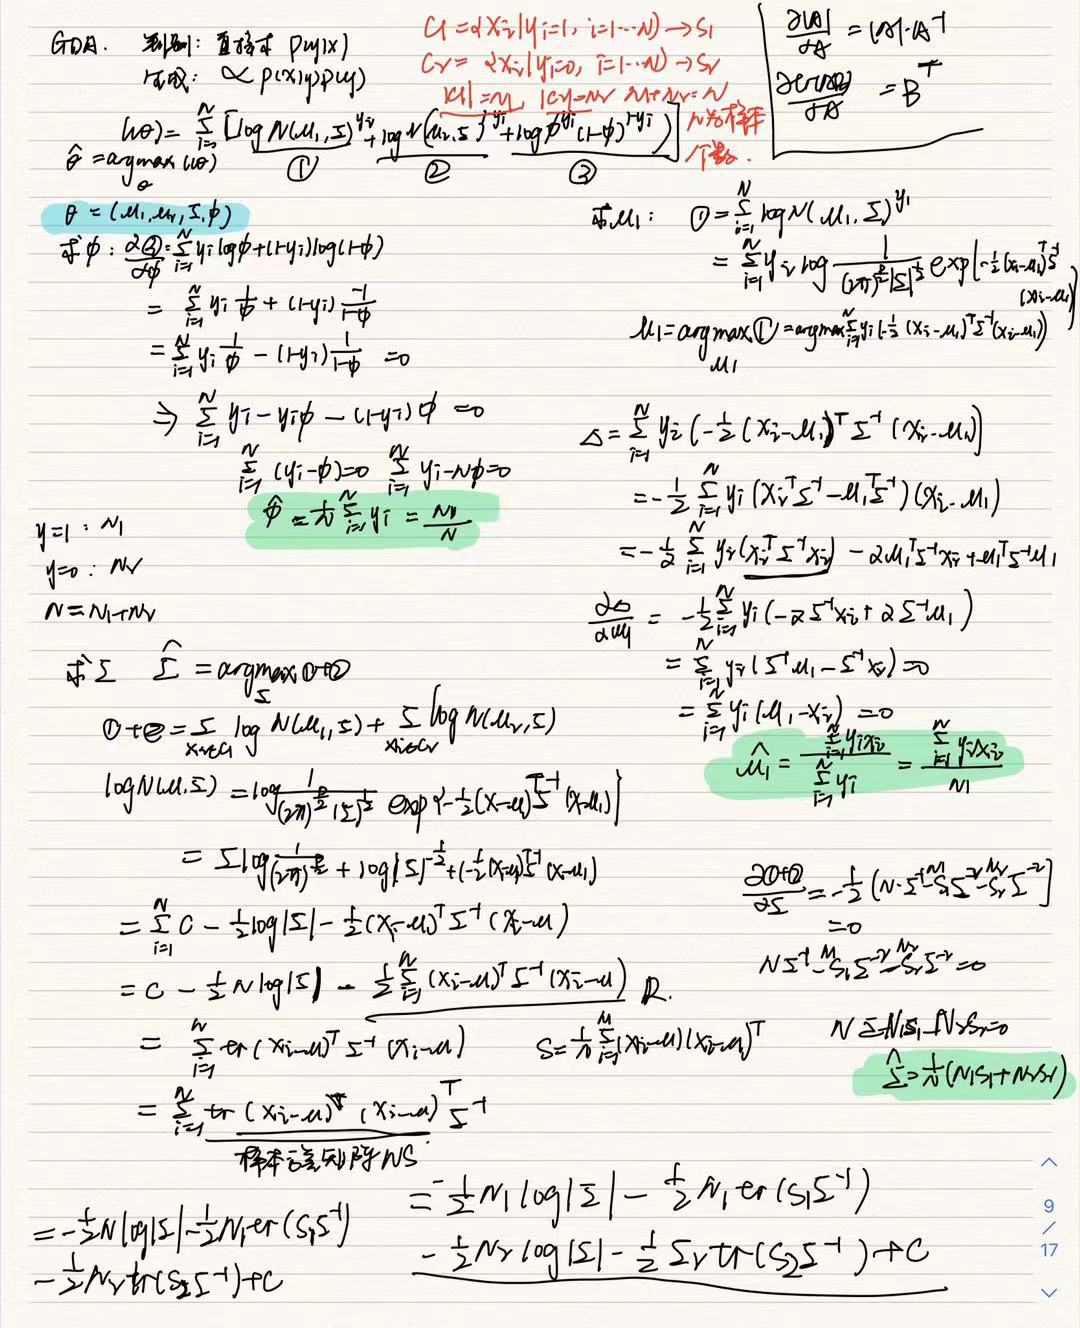 GDA. 判别: 直接求 p(y|x)
生成: ∝ p(x|y)p(y)
C1 = {xi|yi=1, i=1…N} → S1
C2 = {xi|yi=0, i=1…N} → S2
|C1| = N1, |C2| = N2 N1+N2 = N
N为样本
个数.
∂|A|/∂A = |A|·A^-1
∂tr(AB)/∂A = B^T
l(θ) = Σ_{i=1}^N [log N(μ1,Σ)^yi + log N(μ2,Σ)^{1-yi} + log φ^yi (1-φ)^{1-yi}]
① ② ③
θ̂ = argmax_θ l(θ)
θ = (μ1, μ2, Σ, φ)
求φ: ∂③/∂φ = Σ_{i=1}^N yi log φ + (1-yi) log(1-φ)
= Σ_{i=1}^N yi 1/φ + (1-yi) -1/(1-φ)
= Σ_{i=1}^N yi 1/φ - (1-yi) 1/(1-φ) = 0
⇒ Σ_{i=1}^N yi - yiφ - (1-yi)φ = 0
Σ_{i=1}^N (yi-φ) = 0 Σ_{i=1}^N yi - Nφ = 0
φ̂ = 1/N Σ_{i=1}^N yi = N1/N
y=1 : N1
y=0 : N2
N = N1+N2
求μ1: ① = Σ_{i=1}^N log N(μ1, Σ)^yi
= Σ_{i=1}^N yi log 1/((2π)^{p/2}|Σ|^{1/2}) exp{-1/2 (xi-μ1)^T Σ^-1
(xi-μ1)
μ1 = argmax_μ1 ① = argmax Σ_{i=1}^N yi(-1/2 (xi-μ1)^T Σ^-1 (xi-μ1))
Δ = Σ_{i=1}^N yi (-1/2 (xi-μ1)^T Σ^-1 (xi-μ1))
= -1/2 Σ_{i=1}^N yi (xi^T Σ^-1 - μ1^T Σ^-1)(xi-μ1)
= -1/2 Σ_{i=1}^N yi (xi^T Σ^-1 xi) - 2μ1^T Σ^-1 xi + μ1^T Σ^-1 μ1
∂Δ/∂μ1 = -1/2 Σ_{i=1}^N yi (-2Σ^-1 xi + 2Σ^-1 μ1)
= Σ_{i=1}^N yi (Σ^-1 μ1 - Σ^-1 xi) = 0
= Σ_{i=1}^N yi (μ1-xi) = 0
μ̂1 = Σ_{i=1}^N yixi / Σ_{i=1}^N yi = Σ_{i=1}^N yixi / N1
求Σ Σ̂ = argmax_Σ ①+②
①+② = Σ_{xi∈C1} log N(μ1,Σ) + Σ_{xi∈C2} log N(μ2,Σ)
log N(μ,Σ) = log 1/((2π)^{p/2}|Σ|^{1/2}) exp{-1/2 (x-μ)^T Σ^-1 (x-μ)}
= Σ log 1/(2π)^{p/2} + log|Σ|^{-1/2} + (-1/2 (x-μ)^T Σ^-1 (x-μ))
= Σ_{i=1}^N C - 1/2 log|Σ| - 1/2 (xi-μ)^T Σ^-1 (xi-μ)
= C - 1/2 N log|Σ| - 1/2 Σ_{i=1}^N (xi-μ)^T Σ^-1 (xi-μ) R.
= Σ_{i=1}^N tr (xi-μ)^T Σ^-1 (xi-μ) S = 1/N Σ_{i=1}^N (xi-μ)(xi-μ)^T
= Σ_{i=1}^N tr (xi-μ) (xi-μ)^T Σ^-1
NS
∂①+②/∂Σ = -1/2 (N·Σ^-1 - N1 S1 Σ^-2 - N2 S2 Σ^-2)
= 0
NΣ^-1 - N1 S1 Σ^-2 - N2 S2 Σ^-2 = 0
NΣ - N1S1 - N2S2 = 0
Σ̂ = 1/N (N1S1 + N2S2)
= -1/2 N1 log|Σ| - 1/2 N1 tr(S1Σ^-1)
- 1/2 N2 log|Σ| - 1/2 Σ2 tr(S2Σ^-1) + C
= -1/2 N log|Σ| - 1/2 N1 tr(S1Σ^-1)
- 1/2 N2 tr(S2Σ^-1) + C
9
/
17